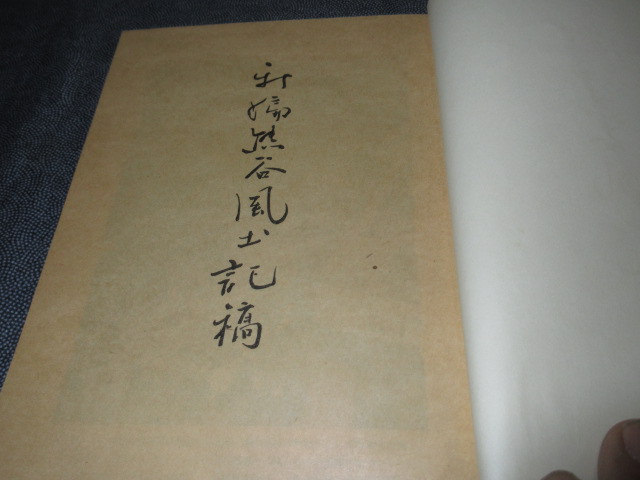 新編熊谷風土記稿